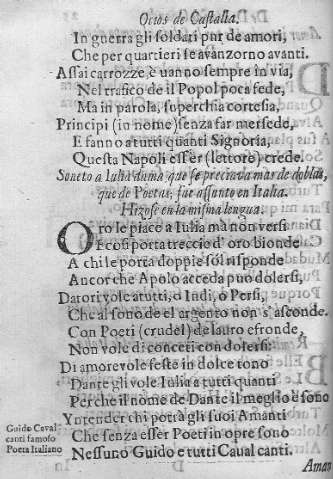 Ocios de Castalia.
In guerra gli soldati pur de amori,
Che per quartieri se avanzorno avanti.
Assai carrozze è vanno sempre in via,
Nel trafico de il Popol poca fede,
Ma in parola, superchia cortesia,
Principi (in nome) senza far mersede,
E fanno a tutti quanti Signoria,
Questa Napoli esser (lettore) crede.
Soneto a Iulia dama que se preciava mas de doblas,
que de Poetas, fue assunto en Italia.
Hizose en la misma lengua.
Oro le piace a Iulia ma non versi
E cosi porta treccio d'oro bionde
A chi le porta doppie sol risponde
Ancor che Apolo acceda puo dolersi,
Datori vole a tutti, o Indi, o Persi,
Che al sono de el argento non s'asconde.
Con Poeti (crudel) de lauro e fronde,
Non vole di conceti con dolersi:
Di amorevole feste in dolce tono
Dante gli vole Iulia a tutti quanti
Perche il nome de Dante il meglio è sono
Yntender chi potrà gli suoi Amanti
Che senza esser Poeti in opre sono
Nessuno Guido e tutti Caual canti.
Guido Caval
canti famoso
Poeta Italiano
Aman